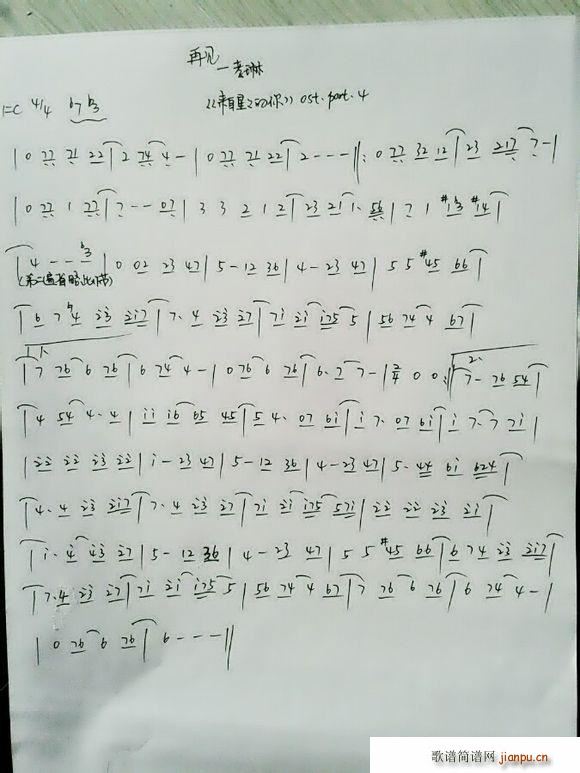 再见
—李琳
《来自星星的你》ost.part.4
1=C 4/4 b7 b3
| 0 77 71 22 | 2 74 4 - | 0 77 71 22 | 2 - - - ‖: 0 77 32 12 | 23 217 7 - |
| 0 77 1 77 | 7 - - - 07 | 3 3 2 1 2 | 23 21 1· 56 | 7 1 #13 #14 |
| 4 - - 3 | 0 02 23 47 | 5 - 12 36 | 4 - 23 47 | 5 5 #45 66 |
(第二遍省略此小节)
| 6 7 4 23 217 | 7· 4 23 27 | 71 21 175 5 | 56 74 4 67 |
1.
| 7 76 6 76 | 6 74 4 - | 0 76 6 76 | 6· 7 7 - | 2/4 0 0 :‖ 7 - 76 54 |
2.
| 4 54 4· 4 | 11 16 65 45 | 5 4· 07 61 | 1 7· 07 61 | 1 7· 7 71 |
| 22 22 23 22 | 1 - 23 47 | 5 - 12 36 | 4 - 23 47 | 5· 44 61 624 |
| 4· 4 23 217 | 7· 4 23 27 | 71 21 175 571 | 22 22 23 21 |
| 1· 4 43 27 | 5 - 12 36 | 4 - 23 47 | 5 5 #45 66 | 6 74 23 217 |
| 7· 4 23 27 | 71 21 175 5 | 56 74 4 67 | 7 76 6 76 | 6 74 4 - |
| 0 76 6 76 | 6 - - - ‖
歌谱简谱网 jianpu.cn